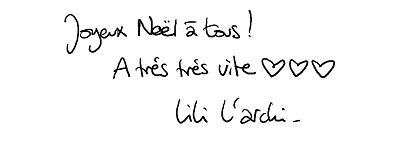 Joyeux Noël à tous !
A trés trés vite ♡♡♡
Lili L'archi_